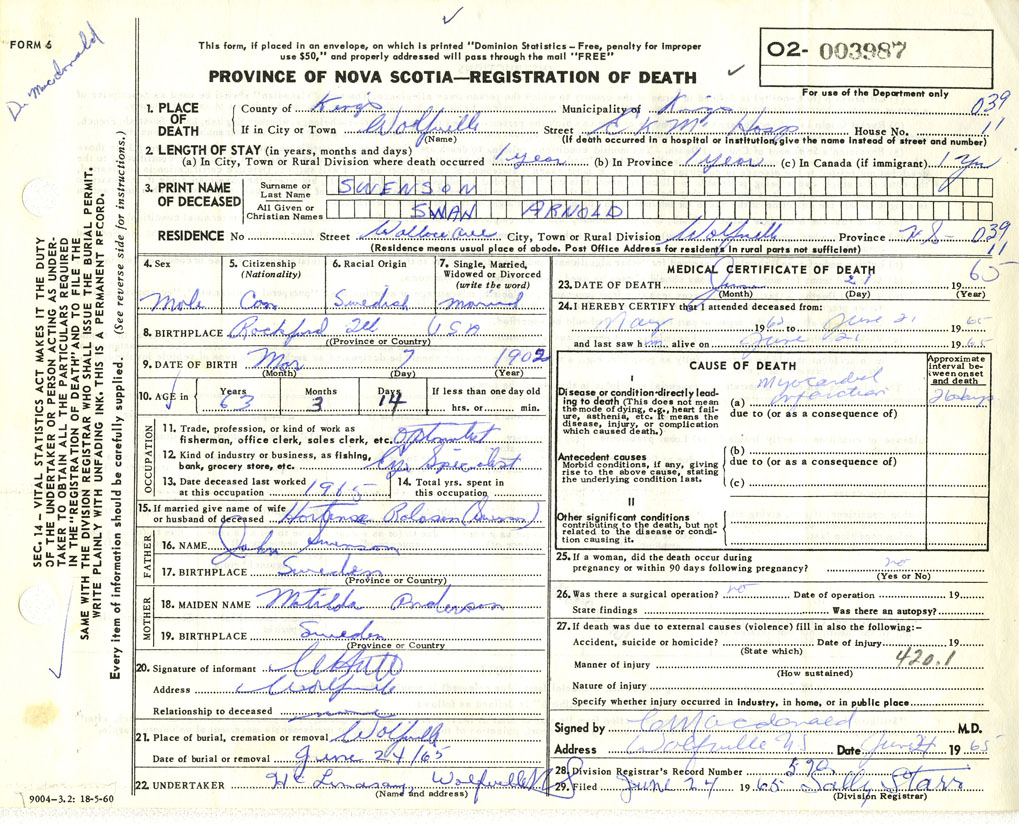 FORM 6
Dr. Macdonald
This form, if placed in an envelope, on which is printed "Dominion Statistics – Free, penalty for improper
use $50," and properly addressed will pass through the mail "FREE"
PROVINCE OF NOVA SCOTIA—REGISTRATION OF DEATH
O2- 003987
For use of the Department only
SEC. 14 – VITAL STATISTICS ACT MAKES IT THE DUTY
OF THE UNDERTAKER OR PERSON ACTING AS UNDER-
TAKER TO OBTAIN ALL THE PARTICULARS REQUIRED
IN THE "REGISTRATION OF DEATH" AND TO FILE THE
SAME WITH THE DIVISION REGISTRAR WHO SHALL ISSUE THE BURIAL PERMIT.
WRITE PLAINLY WITH UNFADING INK. THIS IS A PERMANENT RECORD.
Every item of information should be carefully supplied. (See reverse side for instructions.)
1. PLACE OF DEATH County of Kings Municipality of Kings 039
If in City or Town Wolfville Street E K M Hosp House No. 11
(Name) (If death occurred in a hospital or institution, give the name instead of street and number)
2. LENGTH OF STAY (in years, months and days)
(a) In City, Town or Rural Division where death occurred 1 year (b) In Province 1 year (c) In Canada (if immigrant) 1 Yr
3. PRINT NAME OF DECEASED Surname or Last Name SWENSON
All Given or Christian Names SWAN ARNOLD
RESIDENCE No Street Wallace Ave City, Town or Rural Division Wolfville Province N S 039
(Residence means usual place of abode. Post Office Address for residents in rural parts not sufficient) 11
4. Sex 5. Citizenship (Nationality) 6. Racial Origin 7. Single, Married, Widowed or Divorced (write the word)
Male Can Swedish married
8. BIRTHPLACE Rockford Ill USA
(Province or Country)
9. DATE OF BIRTH Mar 7 1902
(Month) (Day) (Year)
10. AGE in Years Months Days If less than one day old
63 3 14 hrs. or min.
OCCUPATION
11. Trade, profession, or kind of work as
fisherman, office clerk, sales clerk, etc. Optometrist
12. Kind of industry or business, as fishing,
bank, grocery store, etc. Eye Specialist
13. Date deceased last worked at this occupation 1965 14. Total yrs. spent in this occupation
15. If married give name of wife
or husband of deceased Hortense (Swenson)
FATHER
16. NAME John Swenson
17. BIRTHPLACE Sweden
(Province or Country)
MOTHER
18. MAIDEN NAME Matilda Anderson
19. BIRTHPLACE Sweden
(Province or Country)
20. Signature of informant
Address Wolfville
Relationship to deceased
21. Place of burial, cremation or removal Wolfville
Date of burial or removal June 24/65
22. UNDERTAKER H C Lindsay, Wolfville NS
(Name and address)
9004-3.2: 18-5-60
MEDICAL CERTIFICATE OF DEATH 65
23. DATE OF DEATH June 21 19
(Month) (Day) (Year)
24. I HEREBY CERTIFY that I attended deceased from:
May 19 to June 21 1965
and last saw him alive on June 21 1965
CAUSE OF DEATH
Approximate interval between onset and death
I
Disease or condition directly lead-
ing to death (This does not mean
the mode of dying, e.g., heart fail-
ure, asthenia, etc. It means the
disease, injury, or complication
which caused death.)
(a) Myocardial infarction 26 days
due to (or as a consequence of)
Antecedent causes
Morbid conditions, if any, giving
rise to the above cause, stating
the underlying condition last.
(b)
due to (or as a consequence of)
(c)
II
Other significant conditions
contributing to the death, but not
related to the disease or condi-
tion causing it.
25. If a woman, did the death occur during
pregnancy or within 90 days following pregnancy? no
(Yes or No)
26. Was there a surgical operation? no Date of operation 19
State findings Was there an autopsy?
27. If death was due to external causes (violence) fill in also the following:-
Accident, suicide or homicide? Date of injury 19
(State which) 420.1
Manner of injury
(How sustained)
Nature of injury
Specify whether injury occurred in industry, in home, or in public place
Signed by Macdonald M.D.
Address Wolfville NS Date June 24 1965
28. Division Registrar's Record Number 590
29. Filed June 24 1965 Sally Starr
(Division Registrar)